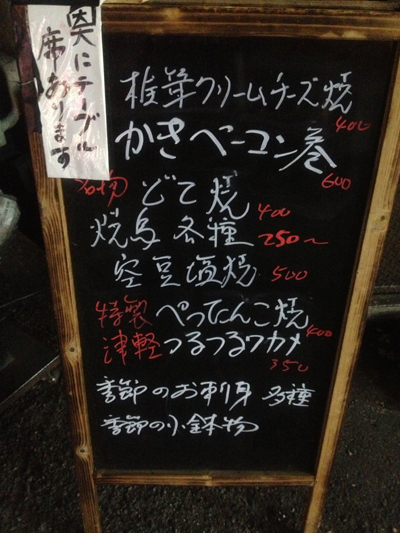 奥にテーブル
席あります
椎茸クリームチーズ焼
400
かきベーコン巻
600
どて焼
400
焼鳥各種 250~
空豆塩焼 500
特製 ぺったんこ焼
400
津軽 つるつるワカメ
350
季節のお刺身 多種
季節の小鉢物